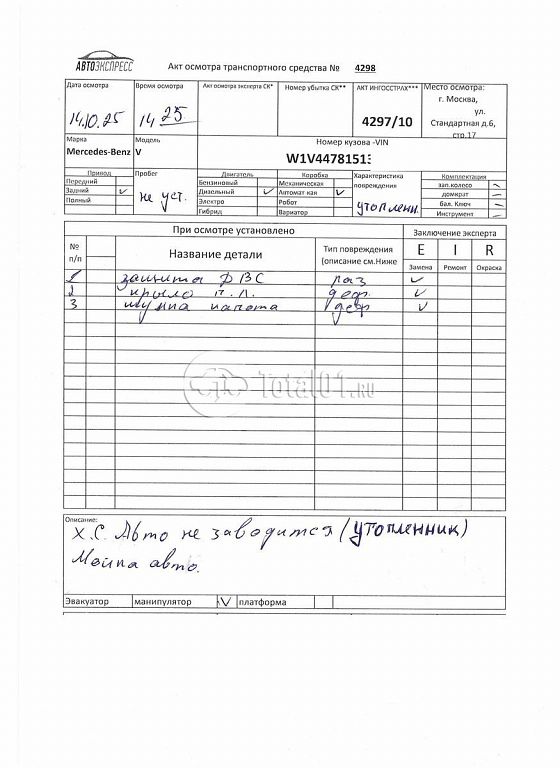 АВТОЭКСПРЕСС
Акт осмотра транспортного средства № 4298
Дата осмотра
14.10.25
Время осмотра
14 25
Акт осмотра эксперта СК*
Номер убытка СК**
АКТ ИНГОССТРАХ***
4297/10
Место осмотра:
г. Москва,
ул.
Стандартная д.6,
стр.17
Марка
Mercedes-Benz
Модель
V
Номер кузова -VIN
W1V4478151
Привод
Передний
Задний ✓
Полный
Пробег
не уст.
Двигатель
Бензиновый
Дизельный ✓
Электро
Гибрид
Коробка
Механическая
Автомат кая ✓
Робот
Вариатор
Характеристика
повреждения
утоплен.
Комплектация
зап.колесо –
домкрат –
бал. Ключ –
Инструмент –
При осмотре установлено
Заключение эксперта
№
п/п
Название детали
Тип повреждения
(описание см.Ниже
E I R
Замена Ремонт Окраска
1 защита ДВС раз ✓
2 крыло п.л. деф. ✓
3 шумка капота деф ✓
Total01.RU
Описание:
Х.С. Авто не заводится (утопленник)
Мойка авто.
Эвакуатор манипулятор ✓ платформа